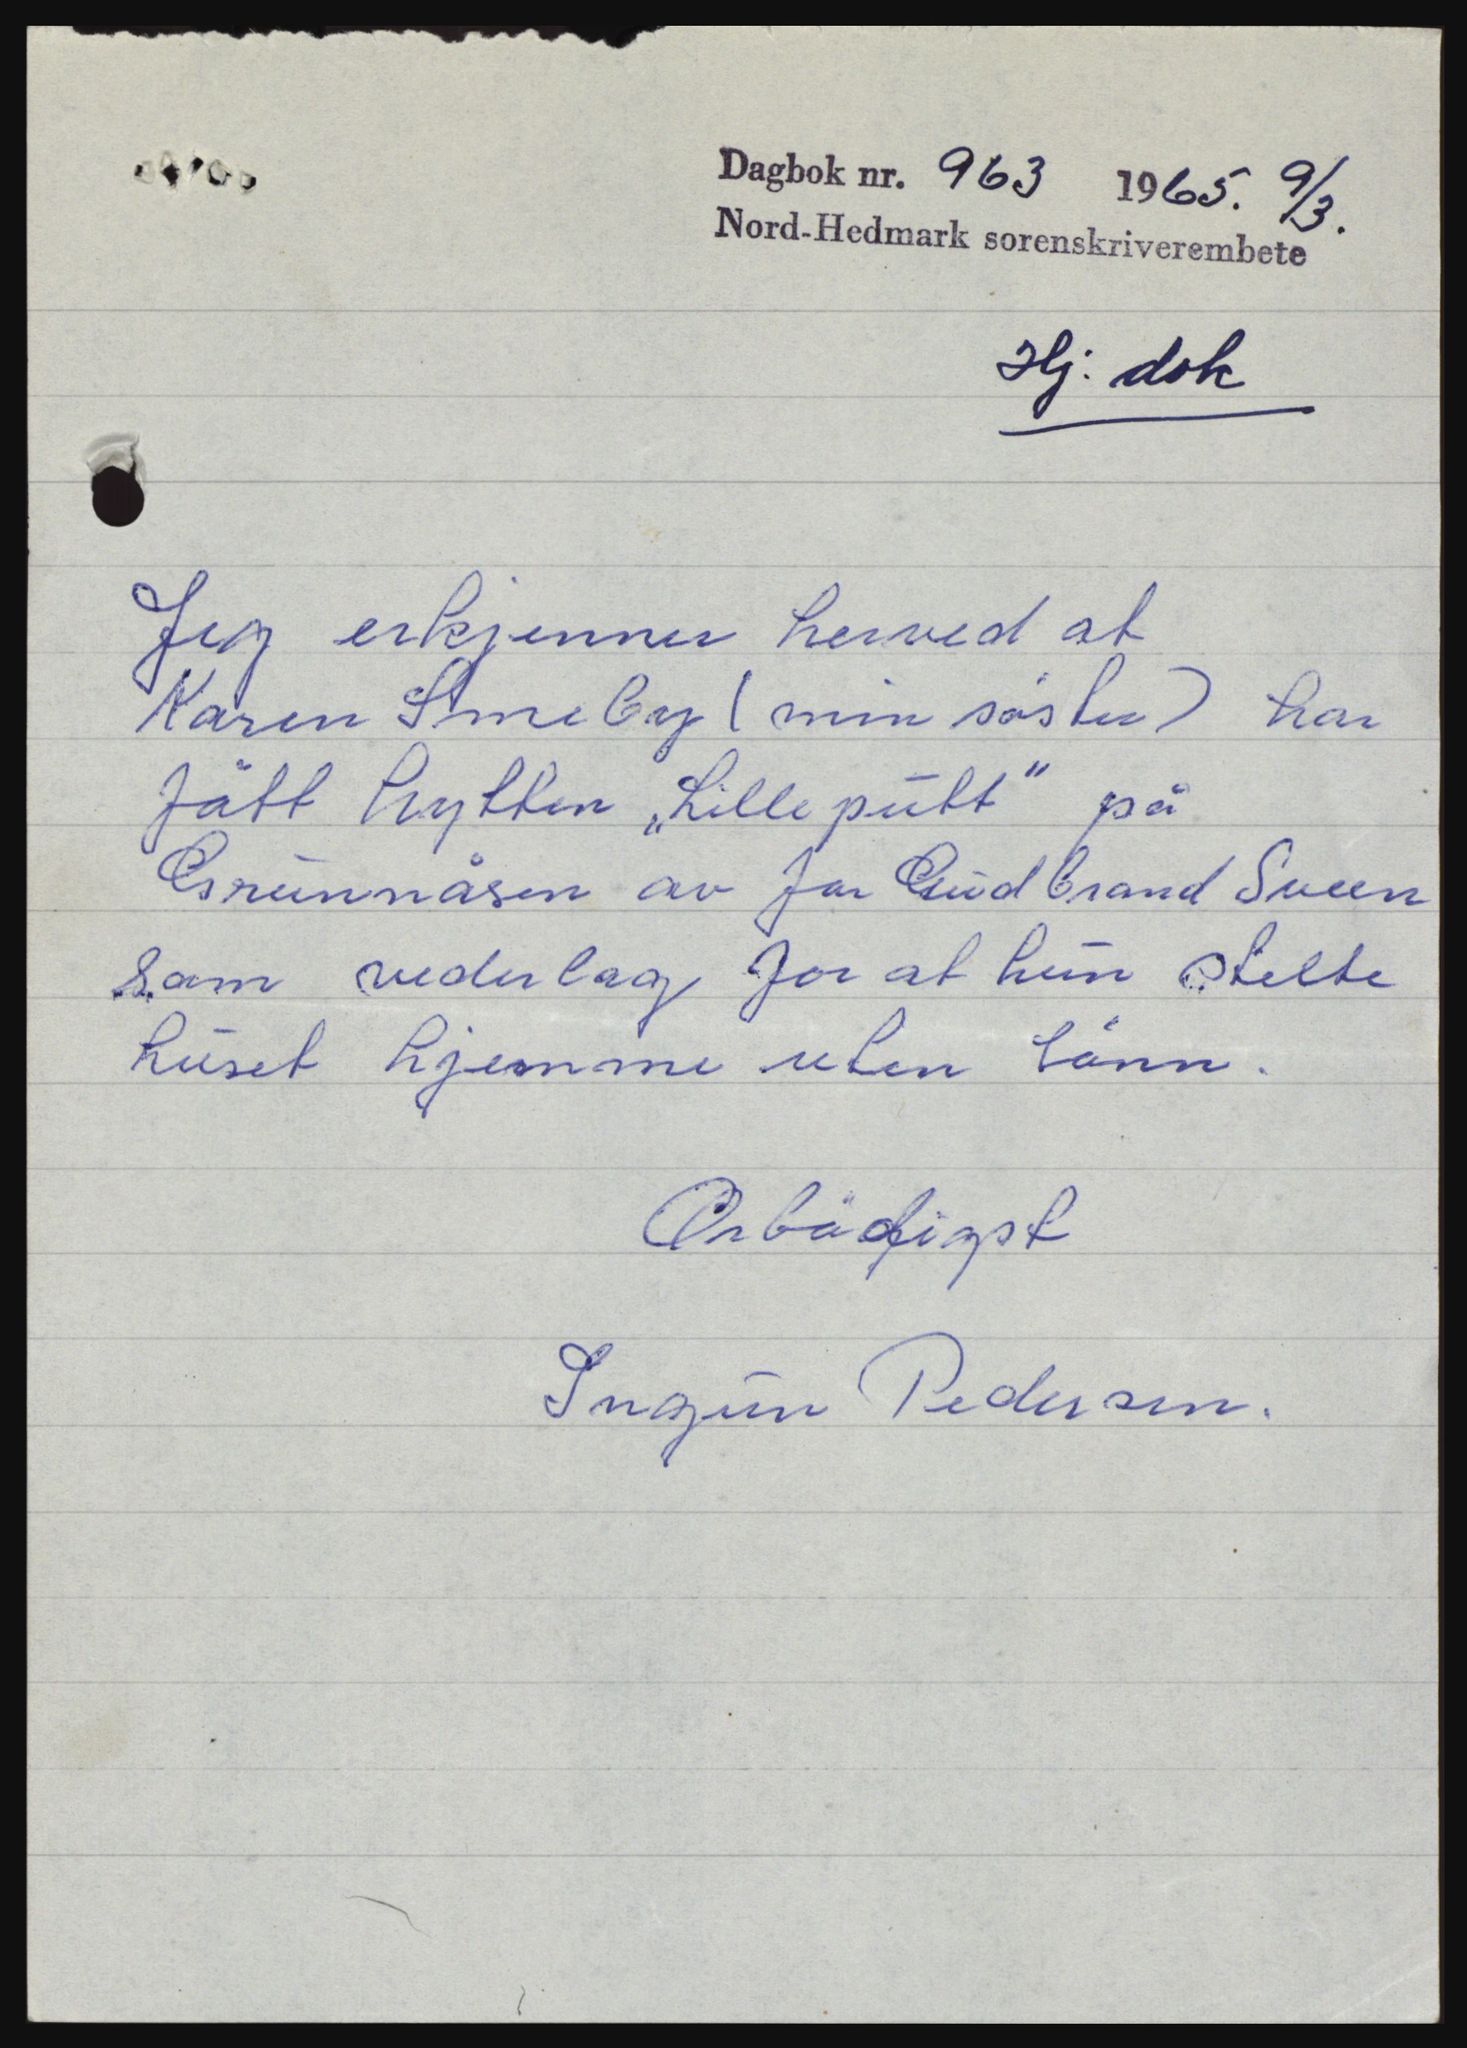 Dagbok nr. 963 1965. 9/3.
Nord-Hedmark sorenskriverembete
Hj. dok
Jeg erkjenner herved at
Karen Smeby (min søster) har
fått hytten „Lilleputt" på
Grunnåsen av far Gudbrand Sveen
som vederlag for at hun stelte
huset hjemme uten lønn.
Ærbødigst
Ingun Pedersen.